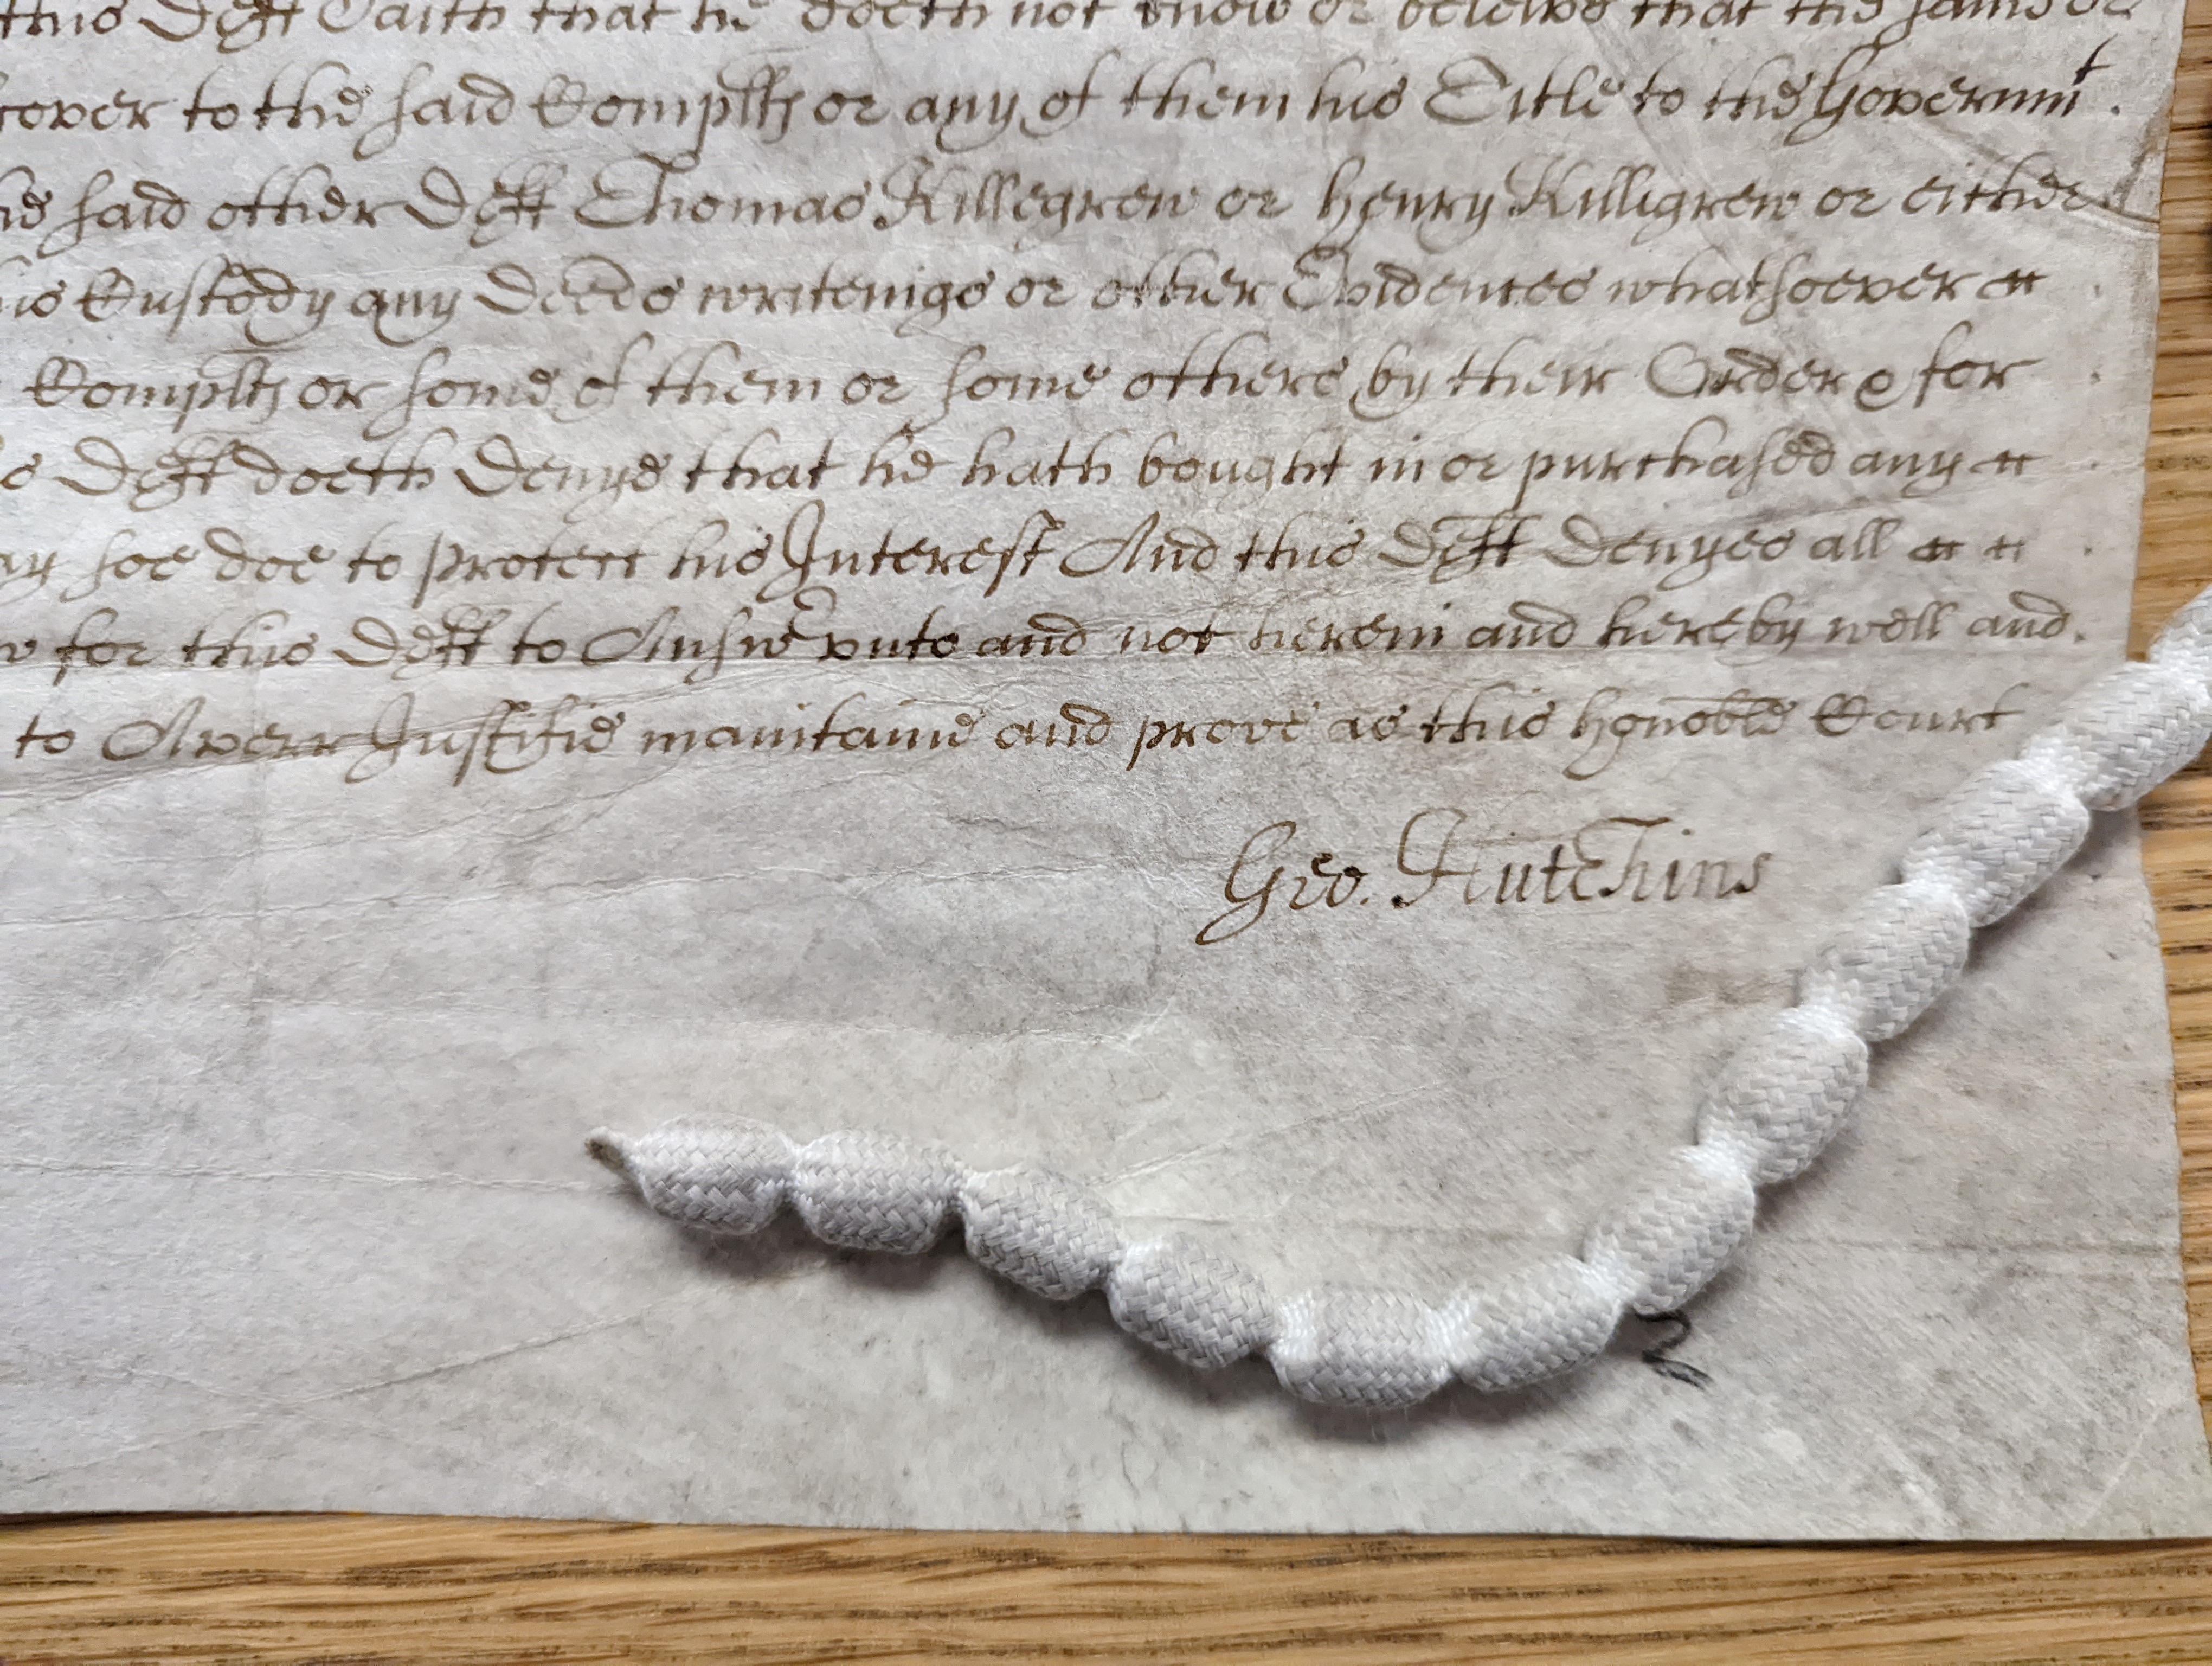 this Deft Saith that he doeth not know or beleive that the same or
soever to the said Complts or any of them his Title to the Governmt.
said other Deft Thomas Killegrew or Henry Killigrew or either
his Custody any Deeds writeings or other Evidences whatsoever
Complts or some of them or some others by their Order & for
Deft doeth Denye that he hath bought in or purchased any
soe doe to protect his Interest And this Deft Denyes all
for this Deft to Answer unto and not herein and hereby well and
to Averr Justifie maintaine and prove as this honoble Court
Geo. Hutchins